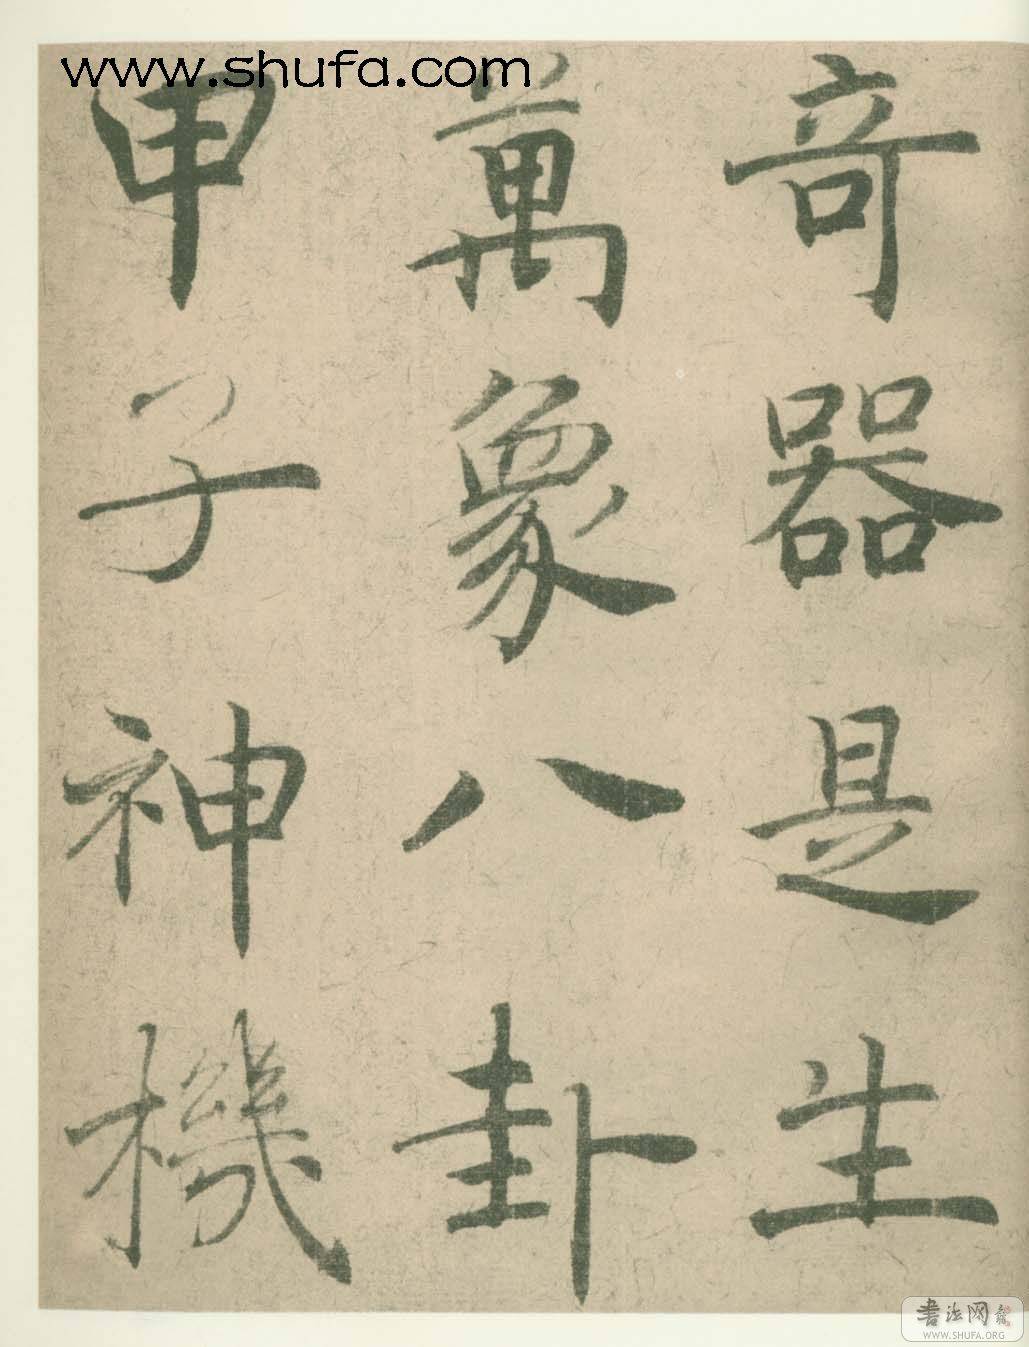 www.shufa.com
奇器是生
萬象八卦
甲子神機
書法网
WWW.SHUFA.ORG